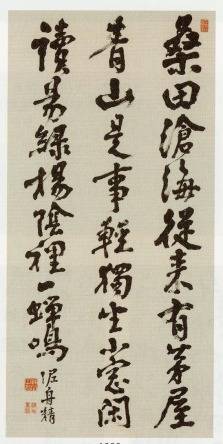 桑田滄海從來有茅屋
青山是事輕獨坐小窓閑
讀易綠楊陰裡一蟬鳴
泥舟精